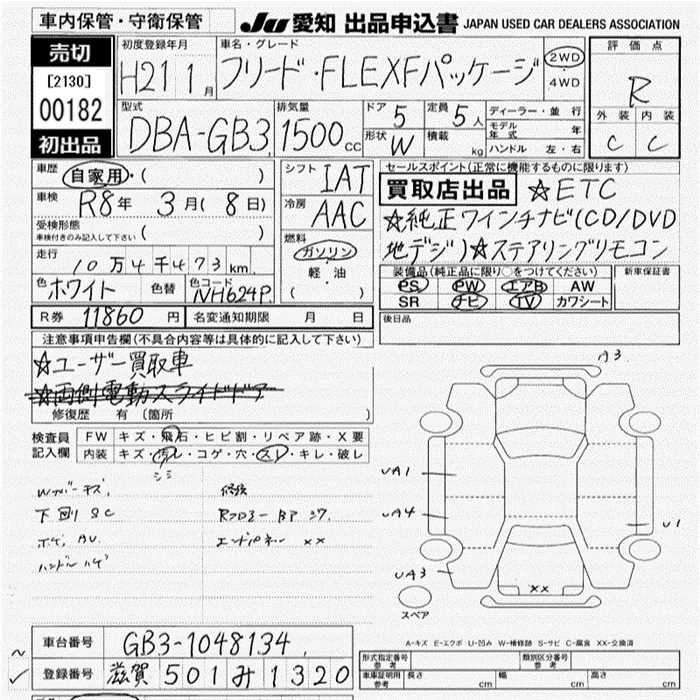 車内保管・守衛保管
JU 愛知 出品申込書 JAPAN USED CAR DEALERS ASSOCIATION
売切
[2130]
00182
初出品
初度登録年月
H21 1月
車名・グレード
フリード・FLEXFパッケージ
2WD
4WD
評価点
R
外装 内装
C C
型式
DBA-GB3
排気量
1500cc
ドア 5
定員 5人
形状 W
積載 kg
ディーラー・並行
モデル年式 年
ハンドル 左・右
車歴
自家用・( )
車検
R8年 3月(8日)
受検形態
車検付きのみ記入して下さい ( )
走行
10万4千473km
色 ホワイト 色替 色コード NH624P
シフト IAT
冷房 AAC
燃料
ガソリン
軽・油
( )
セールスポイント(正常に機能するものに限ります)
買取店出品 ☆ETC
☆純正ワインチナビ(CD/DVD
地デジ)☆ステアリングリモコン
装備品(純正品に限り○をつけてください)
PS PW エアB AW
SR ナビ TV カワシート
新車保証書
R券 11860円 名変通知期限 月 日
後日品
注意事項申告欄(不具合内容等は具体的に記入して下さい)
☆ユーザー買取車
☆両側電動スライドドア
修復歴 有 (箇所 )
検査員記入欄
FW キズ・飛石・ヒビ割・リペア跡・X要
内装 キズ・汚レ・コゲ・穴・スレ・キレ・破レ
シミ
Wカバーキズ 修復
下回り SC
ハンドルハゲ エンドパネル XX
A3
UA1
UA4
U1
UA3
XX
スペア
A-キズ E-エクボ U-凹み W-補修跡 S-サビ C-腐食 XX-交換済
車台番号 GB3-1048134
登録番号 滋賀 501 み 1320
形式指定番号 参考
類別区分番号 参考
車庫証明用 参考 長さ cm 幅 cm 高さ cm